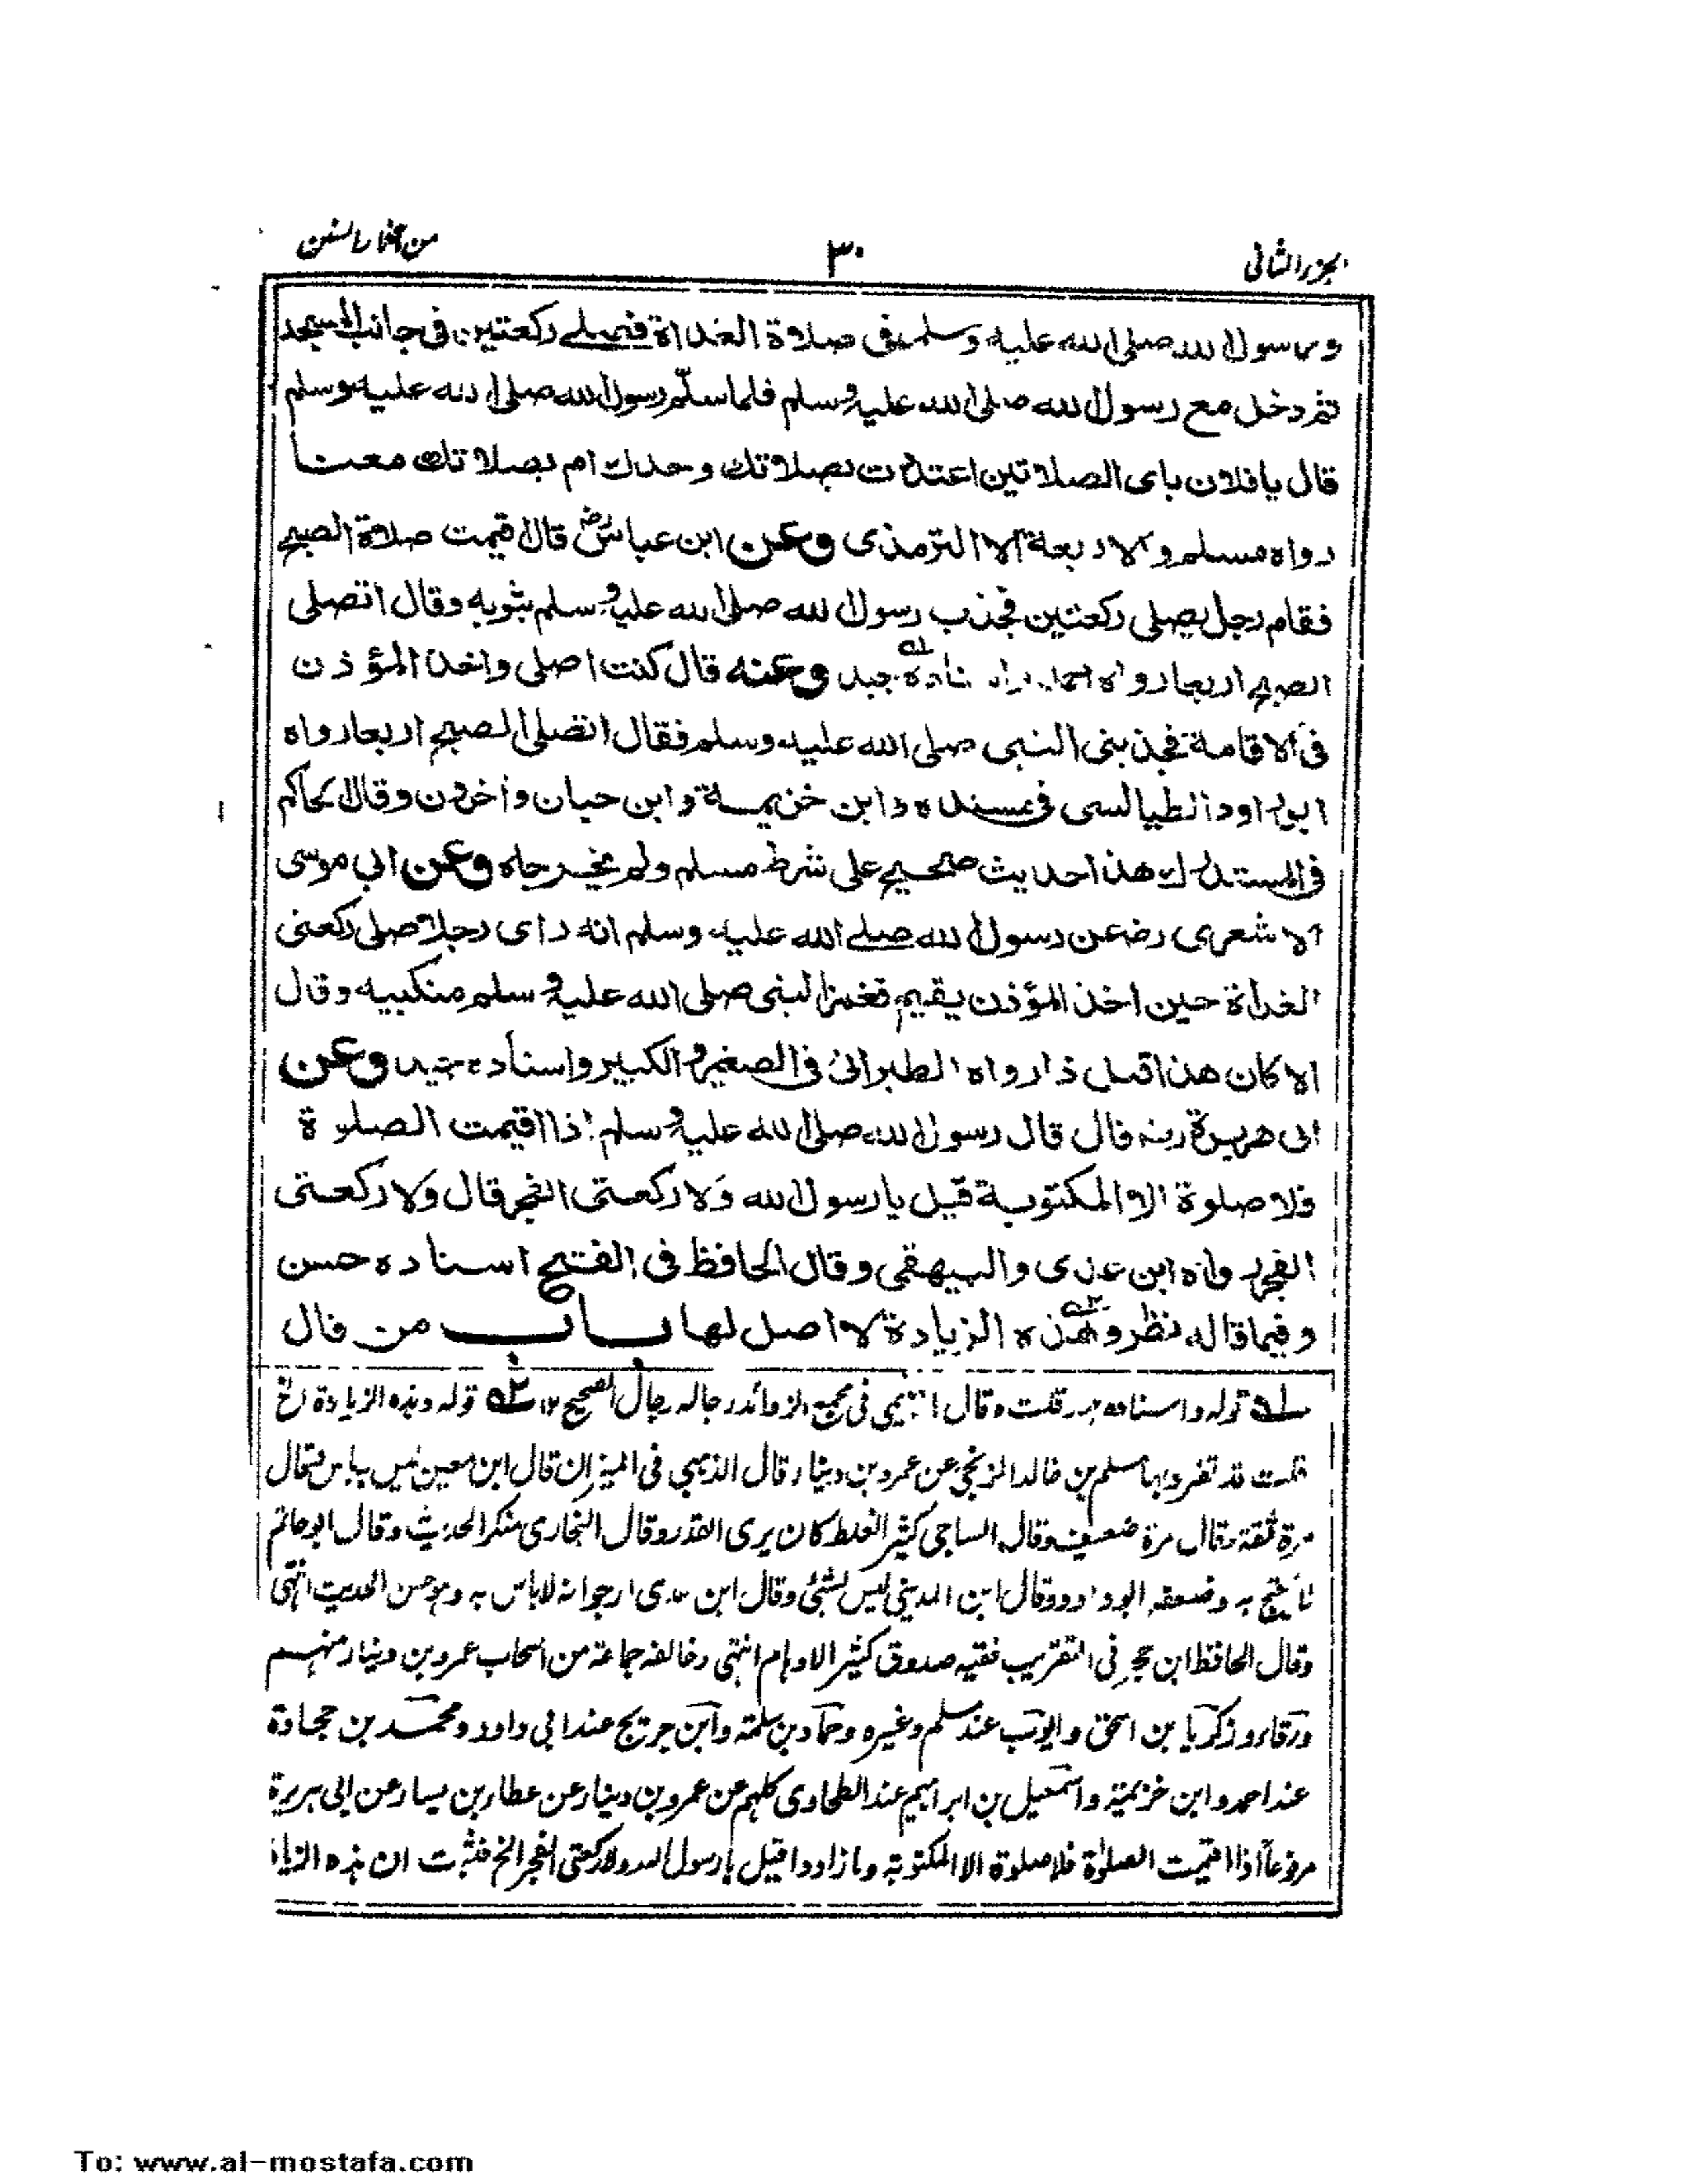 الجزء الثانی
۳۰
من آثار السنن
ورسول الله صلی الله علیه وسلم فی صلاة الغداة فصلے رکعتین فی جانب المسجد
ثم دخل مع رسول الله صلی الله علیه وسلم فلما سلّم رسول الله صلی الله علیه وسلم
قال یا فلان بای الصلاتین اعتددت بصلاتك وحدك ام بصلاتك معنا
رواه مسلم والاربعة الا الترمذی وعن ابن عباس رض قال اقیمت صلاة الصبح
فقام رجل یصلی رکعتین فجذب رسول الله صلی الله علیه وسلم بثوبه وقال اتصلی
الصبح اربعا رواه احمد واسناده جید وعنه قال کنت اصلی واخذ المؤذن
فی الاقامة فجذبنی النبی صلی الله علیه وسلم فقال اتصلی الصبح اربعا رواه
ابو داود الطیالسی فی مسنده وابن خزیمة وابن حبان وأخرون وقال الحاکم
فی المستدرك هذا حدیث صحیح علی شرط مسلم ولم یخرجاه وعن ابی موسی
الاشعری رض عن رسول الله صلے الله علیه وسلم انه رای رجلا صلی رکعتی
الغداة حین اخذ المؤذن یقیم فغمز النبی صلی الله علیه وسلم منکبیه وقال
الا کان هذا قبل ذا رواه الطبرانی فی الصغیر والکبیر واسناده جید وعن
ابی هریرة رض قال قال رسول الله صلی الله علیه وسلم اذا اقیمت الصلوة
فلا صلوة الا المکتوبة قیل یا رسول الله ولا رکعتی الفجر قال ولا رکعتی
الفجر رواه ابن عدی والبیهقی وقال الحافظ فی الفتح اسناده حسن
وفیما قاله نظر وهذه الزیادة لا اصل لها باب من قال
۱ قوله واسناده جید قلت وقال الهیثمی فی مجمع الزوائد رجاله رجال الصحیح ۱۲ ۲ قوله وهذه الزیادة الخ
قلت قد تفرد بها مسلم بن خالد الزنجی عن عمرو بن دینار قال الذهبی فی المیزان قال ابن معین لیس به باس وقال
مرة ثقة وقال مرة ضعیف وقال الساجی کثیر الغلط کان یری القدر وقال البخاری منکر الحدیث وقال ابو حاتم
لا یحتج به وضعفه ابو داود وقال ابن المدینی لیس بشئ وقال ابن عدی ارجو انه لا باس به وهو حسن الحدیث انتهی
وقال الحافظ ابن حجر فی التقریب فقیه صدوق کثیر الاوهام انتهی وخالفه جماعة من اصحاب عمرو بن دینار منهم
ورقاء وزکریا بن اسحق وایوب عند مسلم وغیره وحماد بن سلمة وابن جریج عند ابی داود ومحمد بن جحادة
عند احمد وابن خزیمة واسمعیل بن ابراهیم عند الطحاوی کلهم عن عمرو بن دینار عن عطاء بن یسار عن ابی هریرة
مرفوعاً اذا اقیمت الصلوة فلا صلوة الا المکتوبة وما زادوا قیل یا رسول الله ولا رکعتی الفجر الخ فثبت ان هذه الزیاد
To: www.al-mostafa.com